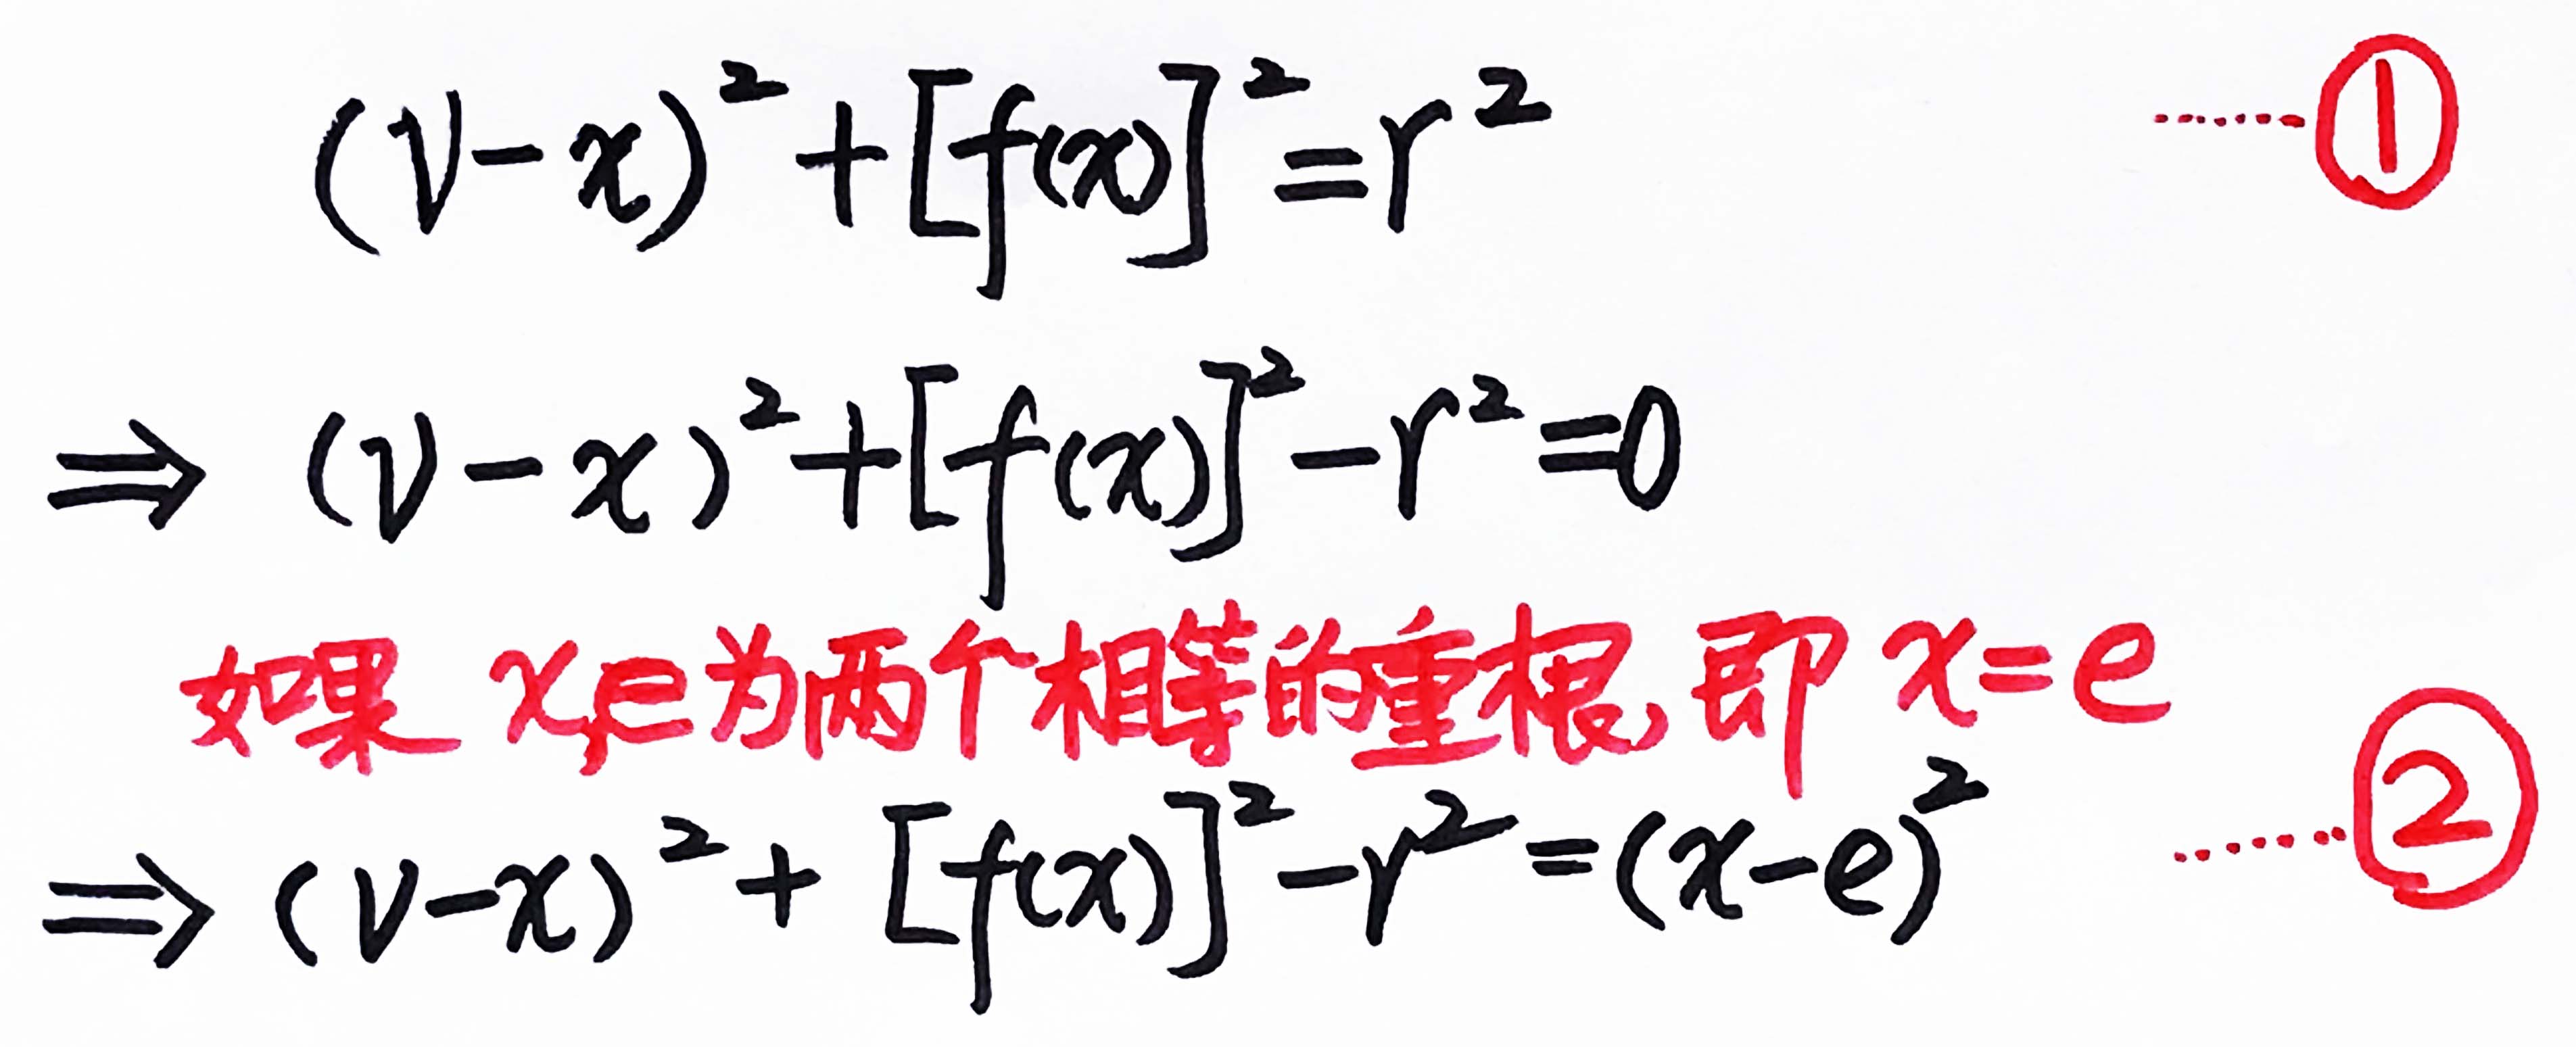 (v-x)²+[f(x)]²=r² ......①
⇒ (v-x)²+[f(x)]²-r²=0
如果 x,e为两个相等的重根,即 x=e
⇒ (v-x)²+[f(x)]²-r²=(x-e)² ......②